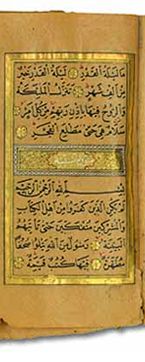 مَا لَيْلَةُ الْقَدْرِ لَيْلَةُ الْقَدْرِ خَيْرٌ
مِنْ اَلْفِ شَهْرٍ تَنَزَّلُ الْمَلٰٓئِكَةُ
وَالرُّوحُ فِيهَا بِاِذْنِ رَبِّهِمْ مِنْ كُلِّ اَمْرٍ
سَلَامٌ هِيَ حَتّٰى مَطْلَعِ الْفَجْرِ
بِسْمِ اللّٰهِ الرَّحْمٰنِ الرَّحِيمِ
لَمْ يَكُنِ الَّذِينَ كَفَرُوا مِنْ اَهْلِ الْكِتَابِ
وَالْمُشْرِكِينَ مُنْفَكِّينَ حَتّٰى تَأْتِيَهُمُ
الْبَيِّنَةُ رَسُولٌ مِنَ اللّٰهِ يَتْلُوا صُحُفًا
مُطَهَّرَةً فِيهَا كُتُبٌ قَيِّمَةٌ